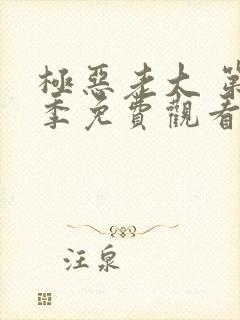 極惡老大 第
季免費觀看
汪泉